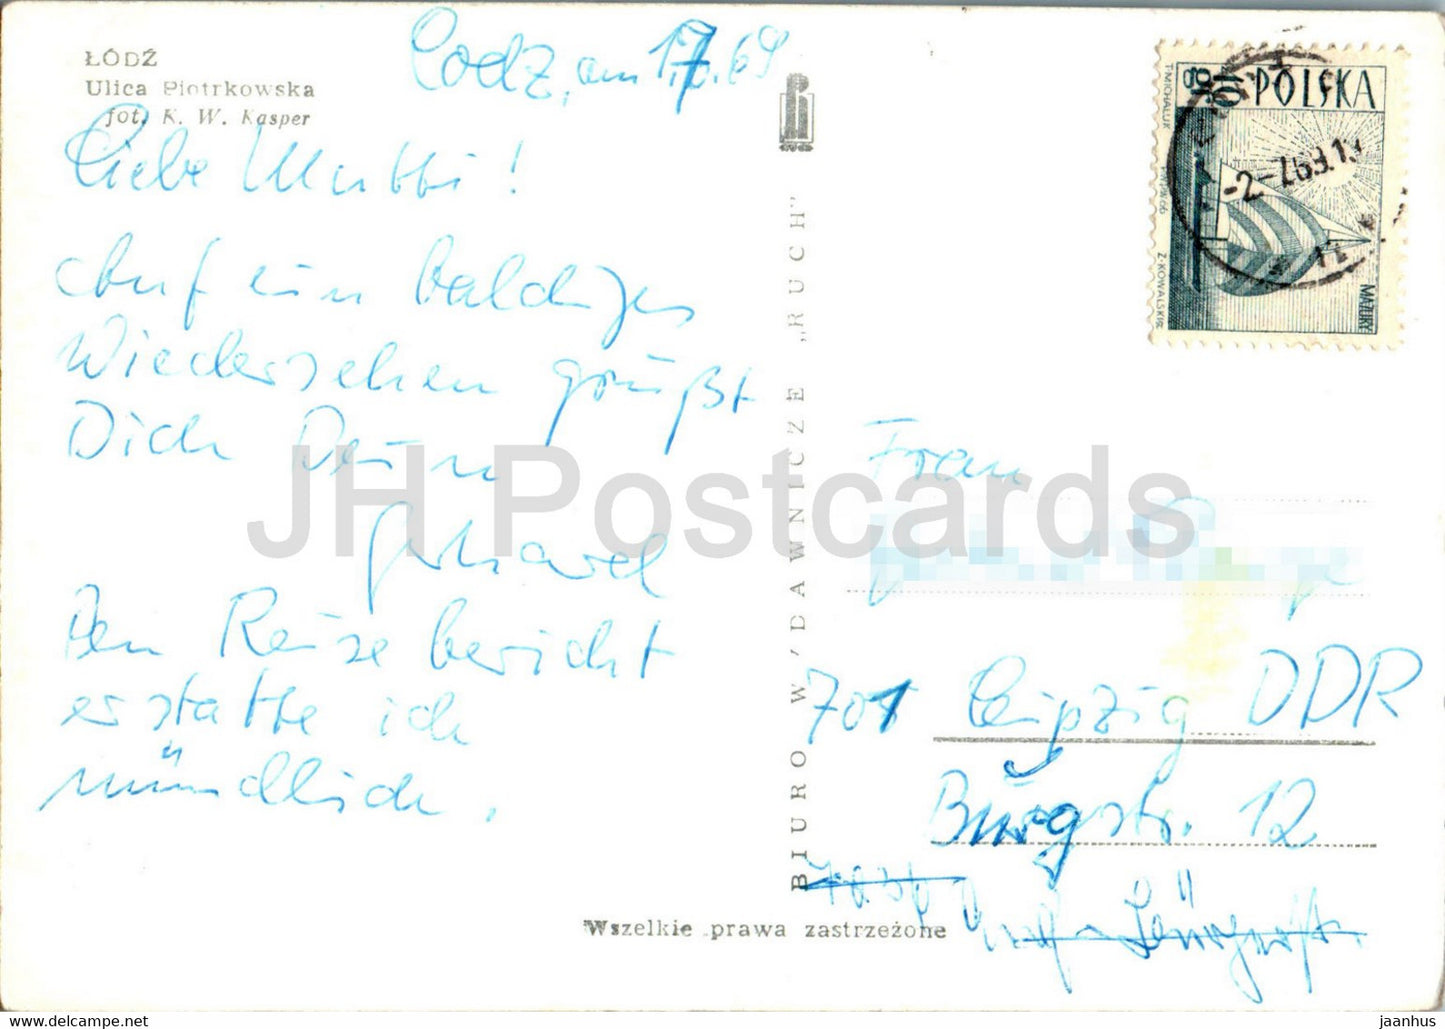 ŁÓDŹ
Ulica Piotrkowska
fot. K. W. Kasper
Lodz, am 1.7.69
Liebe Mutti!
Auf ein baldiges
Wiedersehen grüßt
Dich Dein
Gerhard
Den Reisebericht
erstatte ich
mündlich.
BIURO WYDAWNICZE „RUCH"
Wszelkie prawa zastrzeżone
10 gr POLSKA
MAZURY
T. MICHALUK
Z. KOWALSKI
-2.-7.69.19
Frau
701 Leipzig DDR
Burgstr. 12
JH Postcards
jaanhus